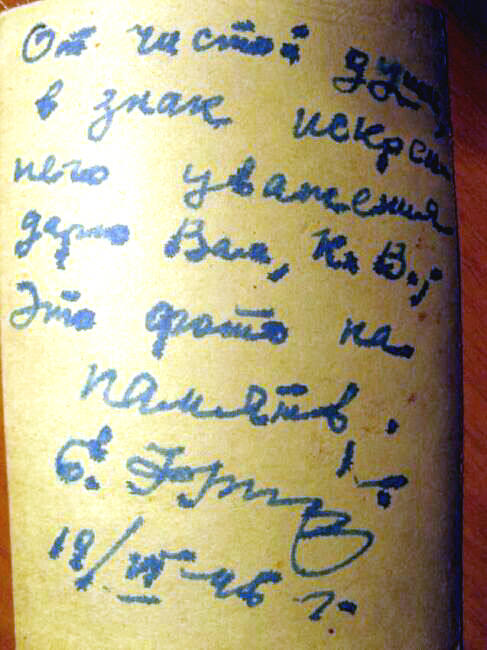 От чистой души,
в знак искрен
него уважения
дарю Вам, К. В.;
Это фото на
память.